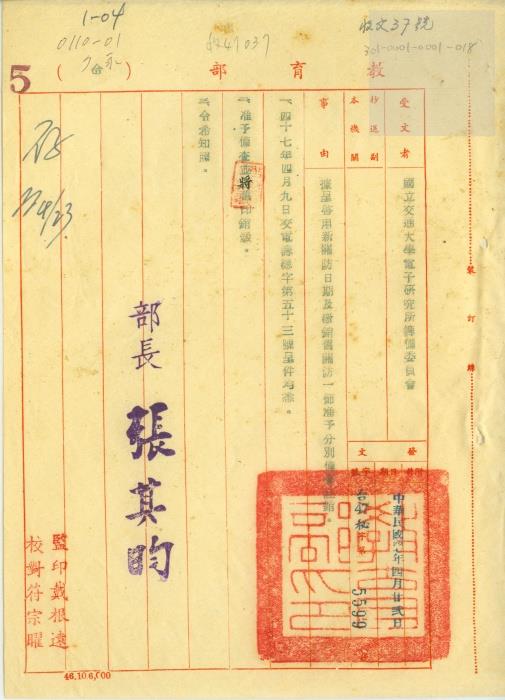 1-04
0110-01
收文37號
301-0001-0001-018
5
教育部(令)
受文者
國立交通大學電子研究所籌備委員會
抄送副本機關
事由
據呈啓用新關防日期及繳銷舊關防一節准予分別備查註銷。
一、四十七年四月九日交電籌總字第五十三號呈件均悉。
二、准予備查並將舊印銷燬。
三、令希知照。
部長 張其昀
發文
中華民國47年四月廿貳日
台47秘字第5599號
監印戴根遠
校對符宗曜
裝訂線
存
46.10.6,000